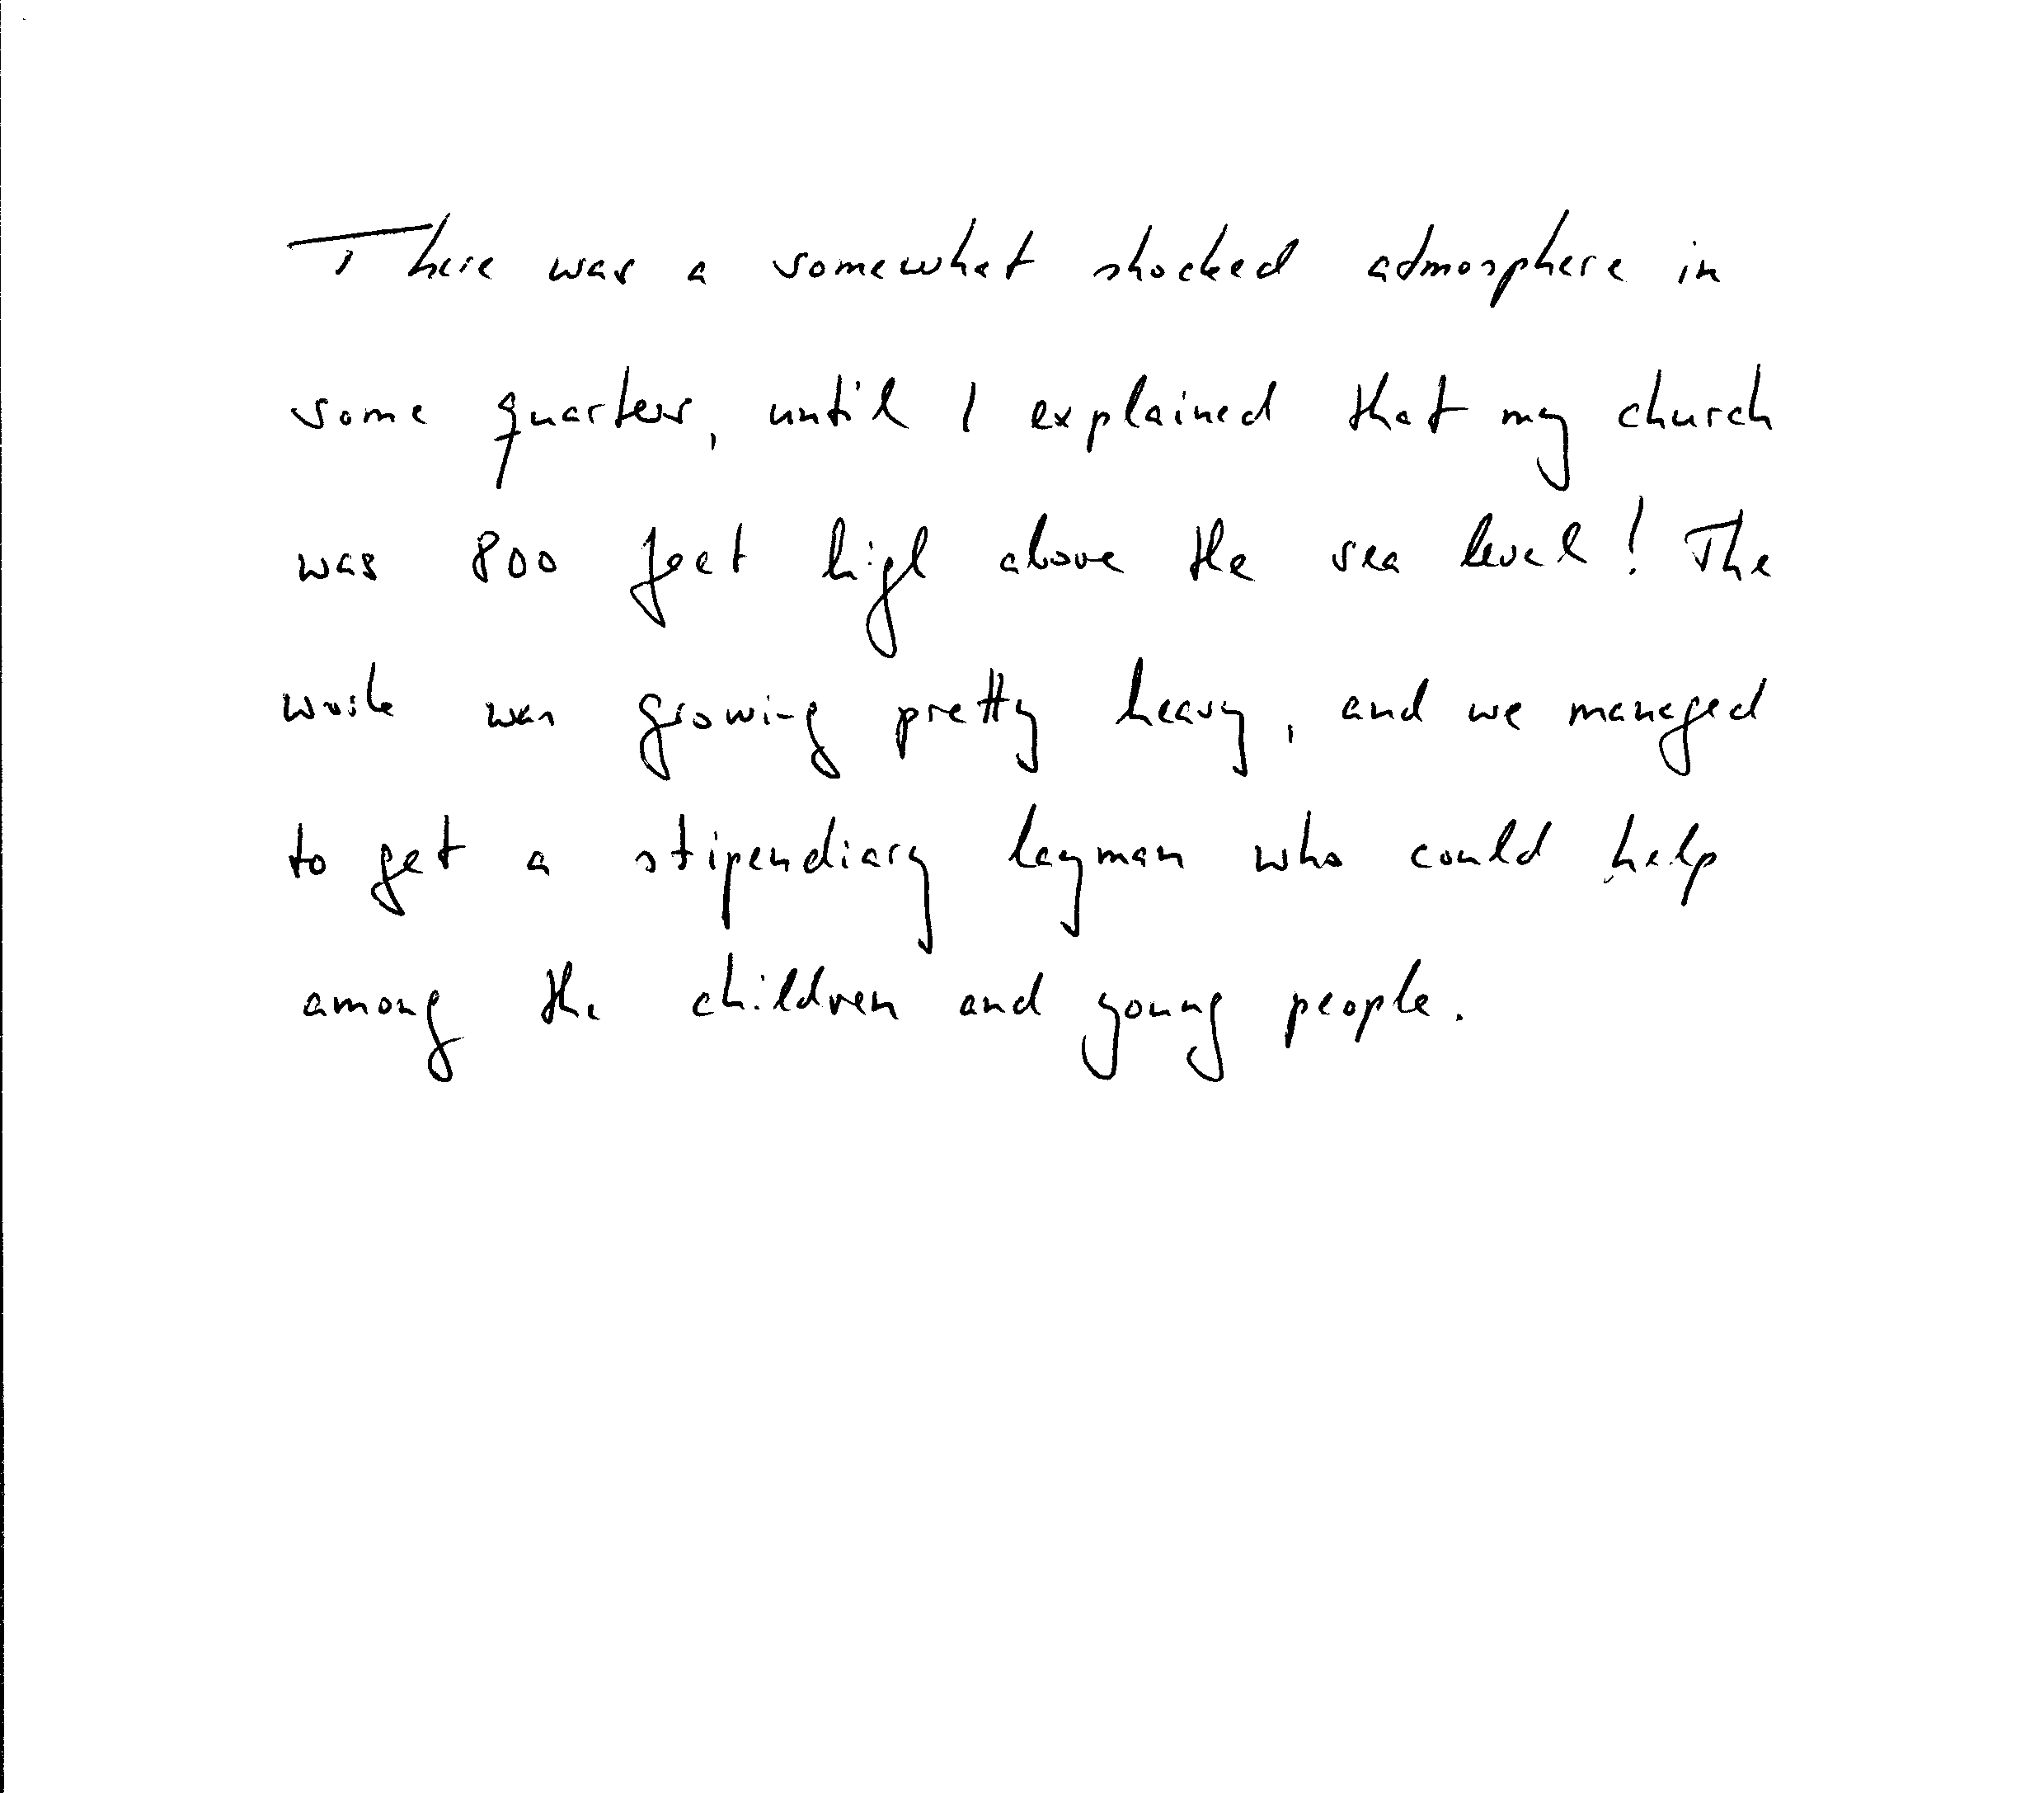 There was a somewhat shocked admosphere in
some quarters, until I explained that my church
was 800 feet high above the sea level! The
work was growing pretty heavy, and we managed
to get a stipendiary layman who could help
among the children and young people.